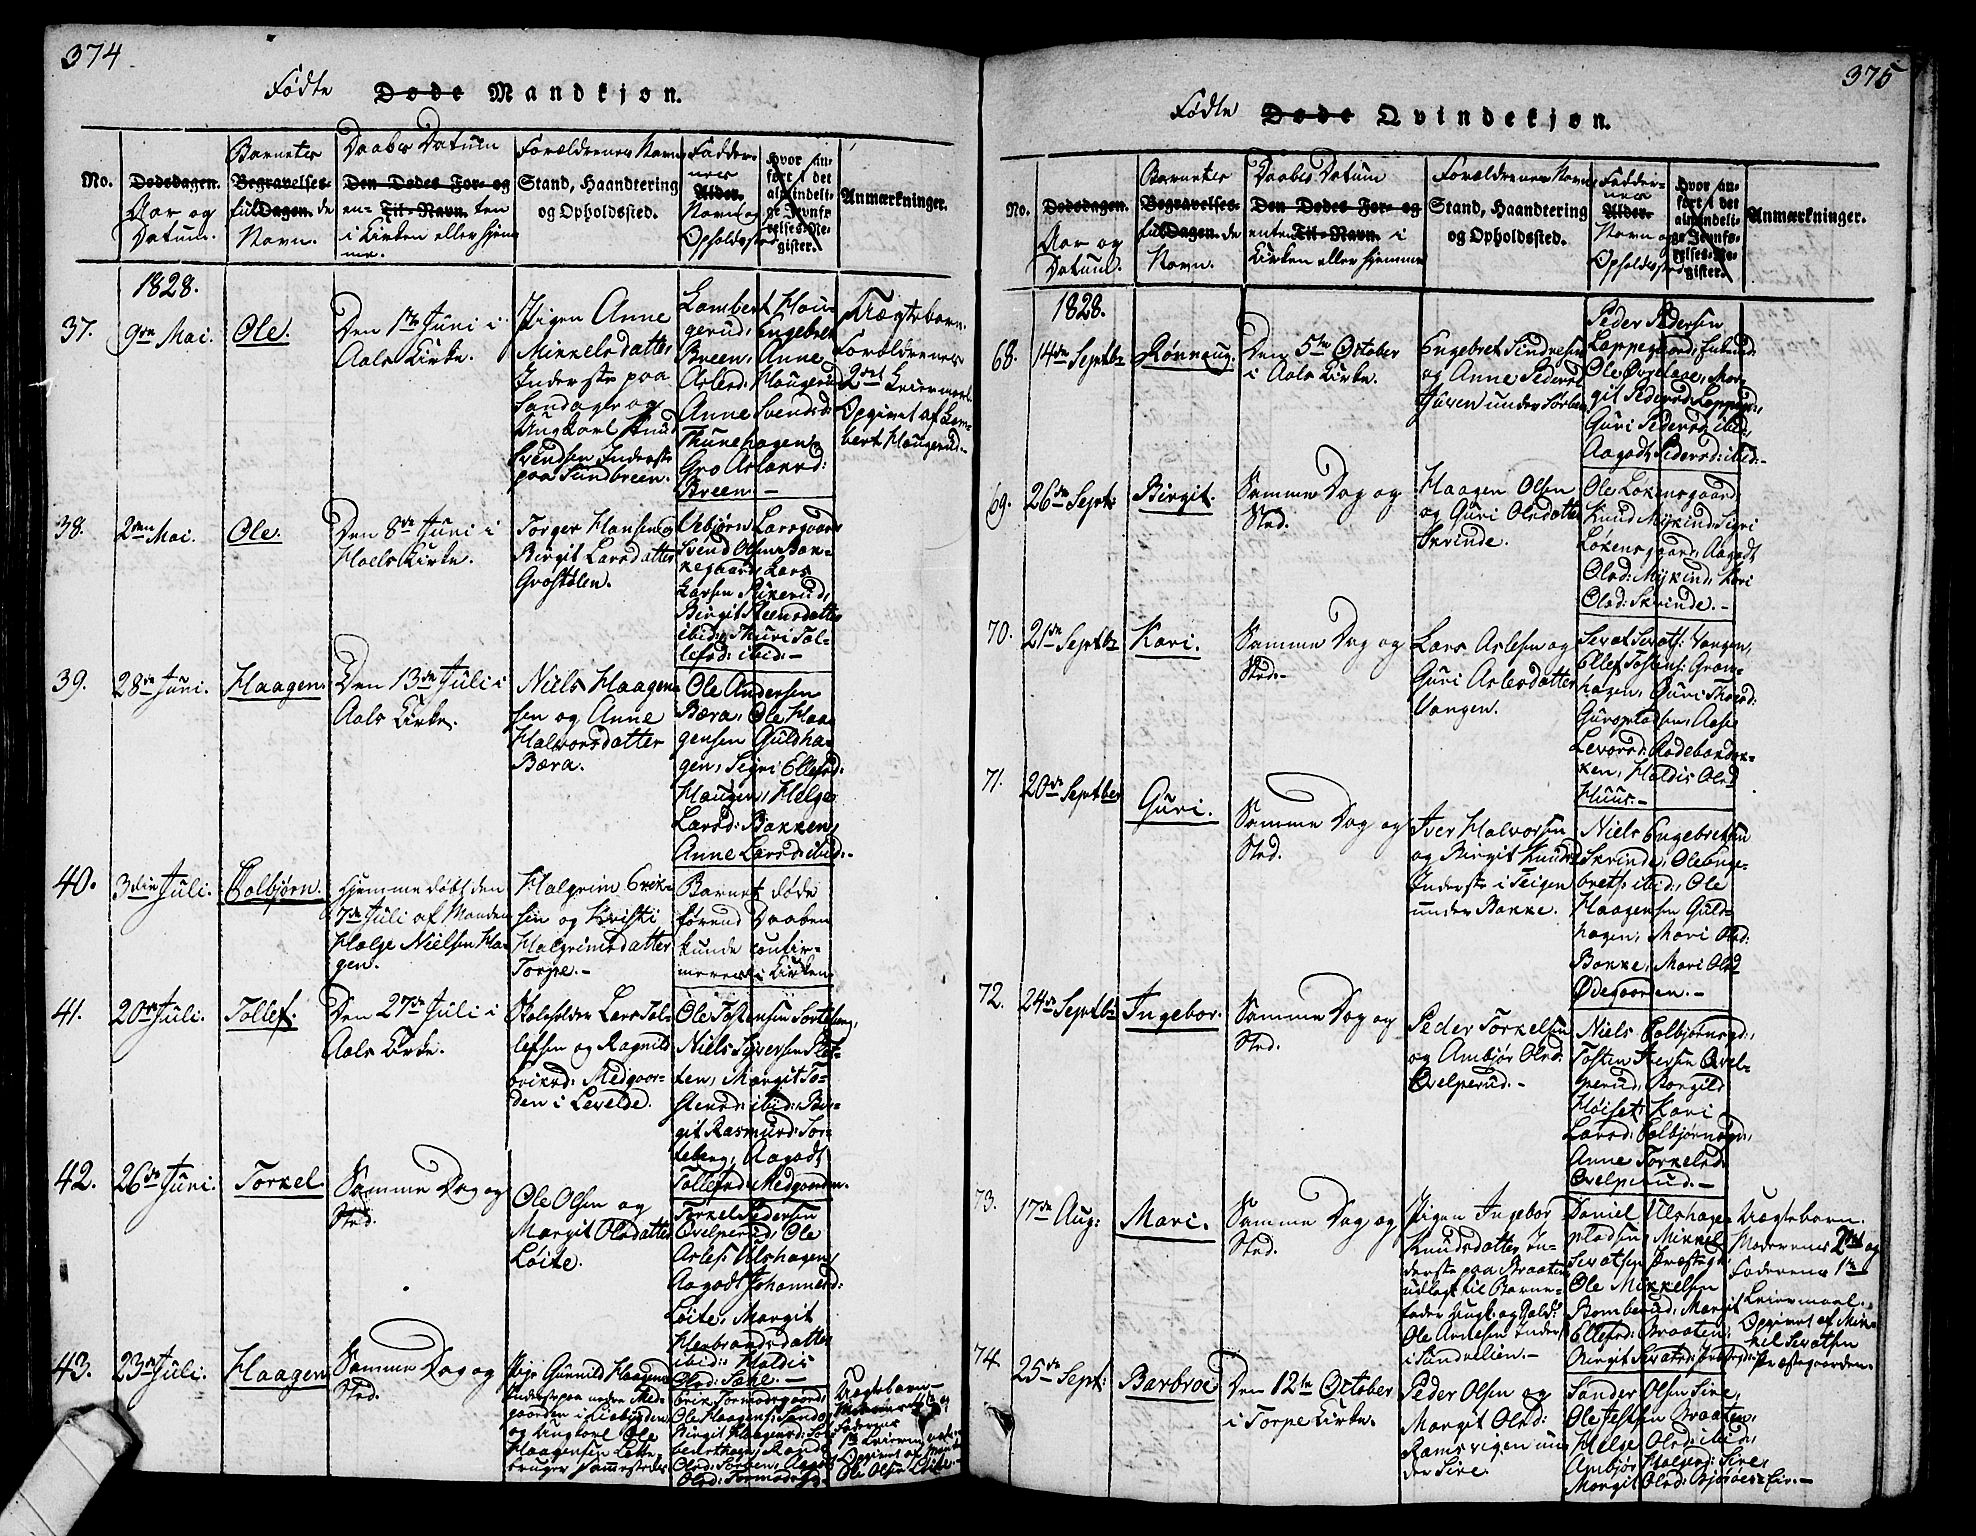 374
Fødte Døde Mandkjøn.
No.
Dødsdagen.
Aar og
Datum.
Barnets
Begravelses-
ful Dagen. de
Navn.
Daabs Datum
Den Dødes For- og
en- Til-Navn. ten
i Kirken eller hjem
me.
Forældrenes Navn
Stand, Haandtering
og Opholdssted.
Fadder-
nes
Alder.
Navn og
Opholdssted
Hvor an-
ført i det
almindeli-
ge Jevnfø-
relses-Re-
gister.
Anmærkninger.
1828.
37.
9de Mai.
Ole.
Den 1ste Juni i
Aals Kirke.
Pigen Anne
Mikkelsdatter
Inderste paa
Sandager og
Ungkarl Knud
Svendsen Inderste
paa Sundbreen.
Lambert Hou-
gerud, Engebret
Breen, Anne
Aslesd: Haugerud
Anne Svendsd:
Thunehagen,
Gro Aslaksd:
Breen.-
Uægtebarn.
Forældrenes
2det Leiermaal.
Opgivet af Lam-
bert Haugerud.-
38.
2den Mai.
Ole.
Den 8de Juni i
Hols Kirke.
Torger Hansen og
Birgit Larsdatter
Grostølen.
Asbjørn Larsgaard
Svend Olsen Bak-
kegaard, Lars
Larsen Rikerud,
Birgit Steensdatter
ibid:, Thuri Tol-
lefsd: ibid:-
39.
28de Juni.
Haagen.
Den 13de Juli i
Aals Kirke.
Niels Haagen-
sen og Anne
Halvorsdatter
Bæra.
Ole Andersen
Bæra, Ole Haa-
gensen Guldha-
gen, Sigri Ellefsd:
Haugen, Helge
Larsd: Bakken,
Anne Larsd: ibid:-
40.
3die Juli.
Colbjørn.
Hjemmedøbt den
7de Juli af Manden
Helge Nielsen Ha-
gen.
Halgrim Erik-
sen og Kristi
Halgrimsdatter
Torpe.-
Barnet døde
førend Daaben
kunde confir-
meres i Kirken.
41.
20de Juli.
Tollef.
Den 27de Juli i
Aals Kirke.
Skoleholder Lars Tol-
lefsen og Ragnild
Eriksd: Medgaar-
den i Levelde.
Ole Tostensen Sorteberg,
Niels Siversen
ten, Margit To-
stensd: ibid: Bir-
git Rasmusd: Sor-
teberg, Aagodt
Tollefsd: Medgaarden.
42.
26de Juni.
Torkel.
Samme Dag og
Sted.
Ole Olsen og
Margit Olsdatter
Løite.
Torkel Pedersen
Qvelperud, Ole
Asles: Ulshagen,
Aagodt Johannesd:
Løite, Margit
Herbrandsdatter
ibid: Haldis
Olsd: Sæhe.-
43.
23de Juli.
Haagen
Samme Dag og
Sted.
Pige Gunnild Haagensd:
Inderste paa nedre Med-
gaarden i Lisbygden
og Ungkarl Ole
Haagensen Leile-
bruger sammesteds.
Erik Tormodsgaard,
Ole Haagens: Sando,
Birgit Haagensd:
Olsd: Torsen, Aagot
Olsd: Tormodsgd.
Uægtebarn-
Faderens
1ste Leiermaal
Opgivet af
Ole Olsen Løite.-
375
Fødte Døde Qvindekjøn.
No.
Dødsdagen.
Aar og
Datum.
Barnets
Begravelses-
ful Dagen. de
Navn.
Daabs Datum
Den Dødes For- og
enten Til-Navn. i
Kirken eller hjemme
Forældrenes Navn
Stand, Haandtering
og Opholdssted.
Fadder-
nes
Alder.
Navn og
Opholdssted
Hvor an-
ført i det
almindeli-
ge Jevnfø-
relses-Re-
gister.
Anmærkninger.
1828.
68.
14de Septbr
Rønnaug.
Den 5te October
i Aals Kirke.
Engebret Sindresen
og Anne Pedersd:
Juven under Sørbøn
Peder Pedersen
Loppegaard,
Ole Ørgeløe, Mar-
git Pedersd: Loppegd,
Guri Pedersd ibid,
Aagodt Pedersd: ibid:-
69.
26de Septr:
Birgit.
Samme Dag og
Sted.
Haagen Olsen
og Guri Olsdatter
Skrinde.
Ole Løkensgaard,
Knud Mykind, Sigri
Løkensgaard, Aagodt
Olsd: Mykind, Kari
Olsd: Skrinde.-
70.
21de Septbr
Kari.
Samme Dag og
Sted.-
Lars Aslesen og
Guri Aslesdatter
Vangen.
Sevat Sevats: Vangen,
Ellef Tostens: Gram-
hagen, Guri Thorsd:
Guroptaden, Aase
Levorsd: Rodebakke-
ken, Haldis Olsd
Huus.-
71.
20de Septber
Guri.
Samme Dag og
Sted.
Iver Halvorsen
og Birgit Knudsd
Inderste i Teigen
under Bakke.
Niels Engebretsen
Skrinde, Ole Enge-
brets: ibid: Ole
Haagensen Guld-
hagen, Mari Olsd:
Bakke, Mari Olsd
Ødegaarden.-
72.
24de Septbr
Ingebor.
Samme Dag og
Sted.
Peder Torkelsen
og Ambjør Olsd:
Qvelperud.-
Niels Colbjørnsgd:,
Tosten Iversen Qvel-
perud, Rangild
Høiset, Kari
Larsd: Colbjørnsgd:,
Anne Torkelsd:
Qvelperud.-
73.
17de Aug:
Mari.
Samme Dag og
Sted.
Pigen Ingebor
Knudsdatter In-
derste paa Braaten
udlagt til Barne-
fader Ungk. og Sold:
Ole Arnesen Inders
i Sundrelien.-
Daniel Ulshage-
pladsen, Mikkel
Sevatsen Præstegd:
Ole Mikkelsen
Bomberud, Margit
Ellefsd: Braaten,
Birgit Sevatsd: Præstegd:
Uægtebarn.
Moderens 2det og
Faderens 1ste
Leiermaal.
Opgivet af Mik-
kel Sevatsen
Præstegaarden.
74.
25de Sept:
Barbroe
Den 12te October
i Torpe Kirke.
Peder Olsen og
Margit Olsd:
Ramsvigen un-
der Sire.
Sander Olsen Sire,
Ole Jestsen Braaten,
Helge Olsd: ibid:
Ambjør Halsteensd: Sire,
Margit Olsd: